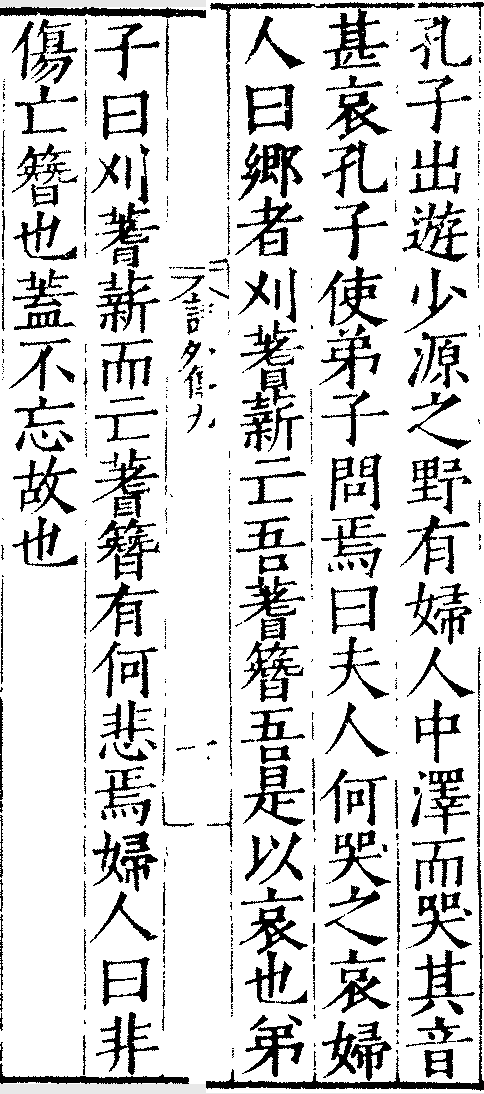 孔子出遊少源之野有婦人中澤而哭其音
甚哀孔子使弟子問焉曰夫人何哭之哀婦
人曰鄉者刈蓍薪亡吾蓍簪吾是以哀也弟
子曰刈蓍薪而亡蓍簪有何悲焉婦人曰非
傷亡簪也蓋不忘故也